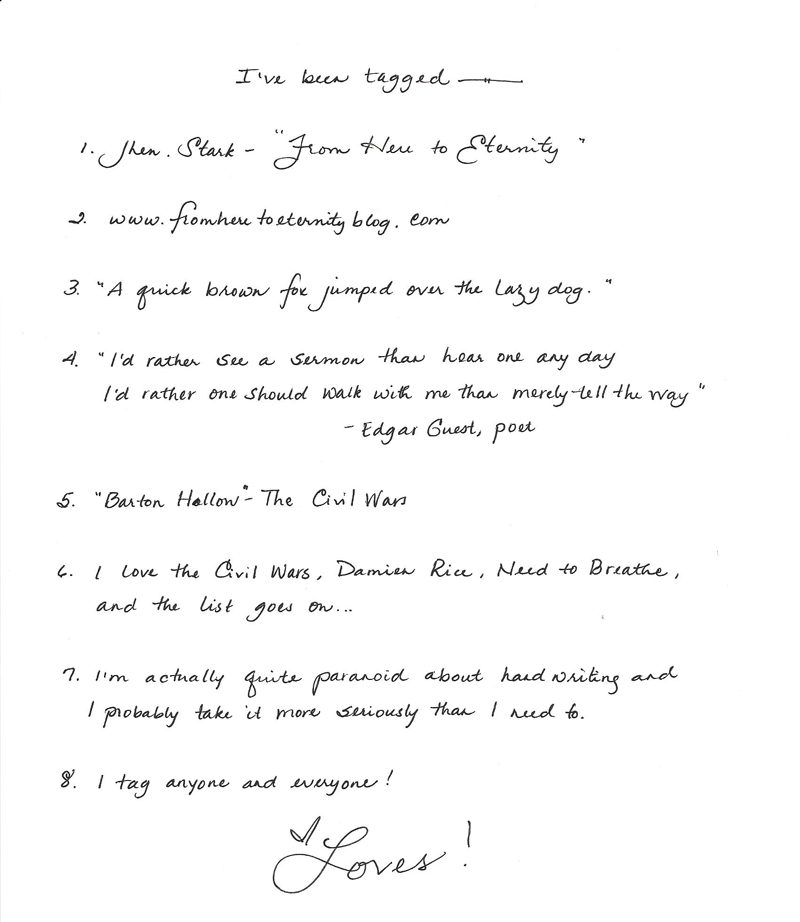 I've been tagged —
1. Jhen. Stark - "From Here to Eternity"
2. www.fromheretoeternityblog.com
3. "A quick brown fox jumped over the lazy dog."
4. "I'd rather see a sermon than hear one any day
I'd rather one should walk with me than merely tell the way"
- Edgar Guest, poet
5. "Barton Hollow" - The Civil Wars
6. I love the Civil Wars, Damien Rice, Need to Breathe,
and the list goes on...
7. I'm actually quite paranoid about handwriting and
I probably take it more seriously than I need to.
8. I tag anyone and everyone!
Loves!